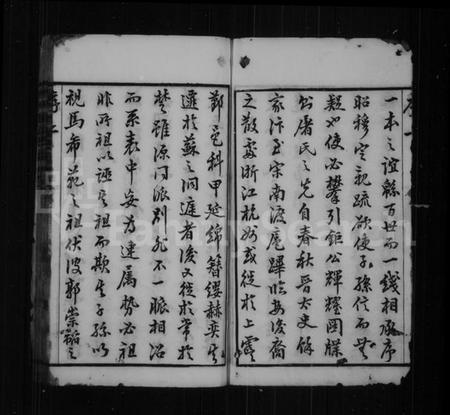 一本之誼綿百世而一錢相承序
昭穆定親疏欲使子孫信而無
疑也使必攀引鉅公輝耀圖牒
屠氏之先自春秋晉太史餘
家汴至宋南渡扈蹕臨安後裔
之散處浙江杭州或徙於上虞
鄞邑科甲延綿簪纓赫奕
遷於蘇之洞庭者後又徙於常於
楚雖源同派別無不一脈相沿
而系表中妄為連屬勢必祖
昨所祖以誣其祖而欺其子孫以
視馬希范之祖伏波郭崇韜之